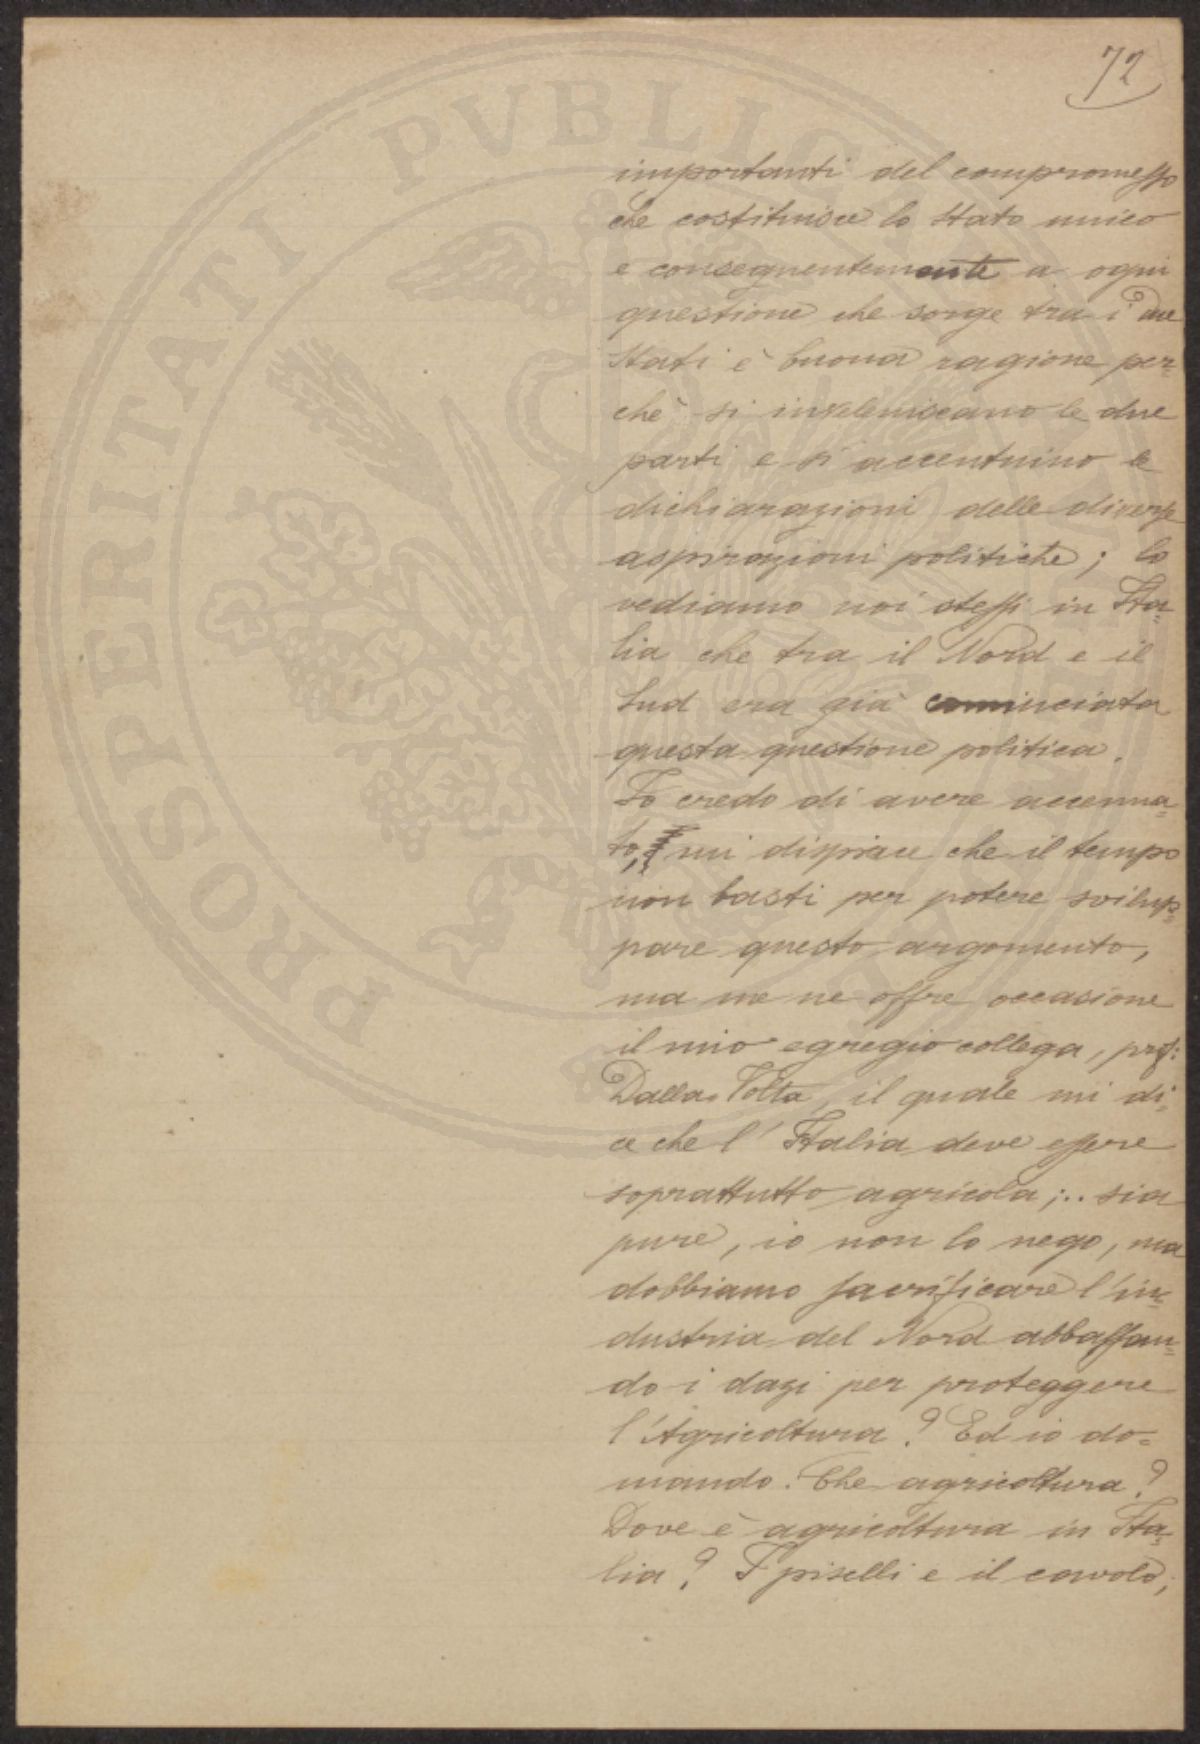 72
importanti del compromesso
che costituisce lo Stato unico
e conseguentemente a ogni
questione che sorge tra i due
Stati è buona ragione per=
chè si inveleniscano le due
parti e si accentuino le
dichiarazioni delle diverse
aspirazioni politiche; lo
vediamo noi stessi in Ita=
lia che tra il Nord e il
Sud era già cominciata
questa questione politica.
Io credo di avere accenna=
to, mi dispiace che il tempo
non basti per potere svilup=
pare questo argomento,
ma me ne offre occasione
il mio egregio collega, prof:
Dalla Volta, il quale mi di=
ce che l'Italia deve essere
soprattutto agricola;.. sia
pure, io non lo nego, ma
dobbiamo sacrificare l'in=
dustria del Nord abbassan=
do i dazi per proteggere
l'Agricoltura? Ed io do=
mando: Che agricoltura?
Dove è agricoltura in Ita=
lia? I piselli e il cavolo;
PROSPERITATI PVBLICAE